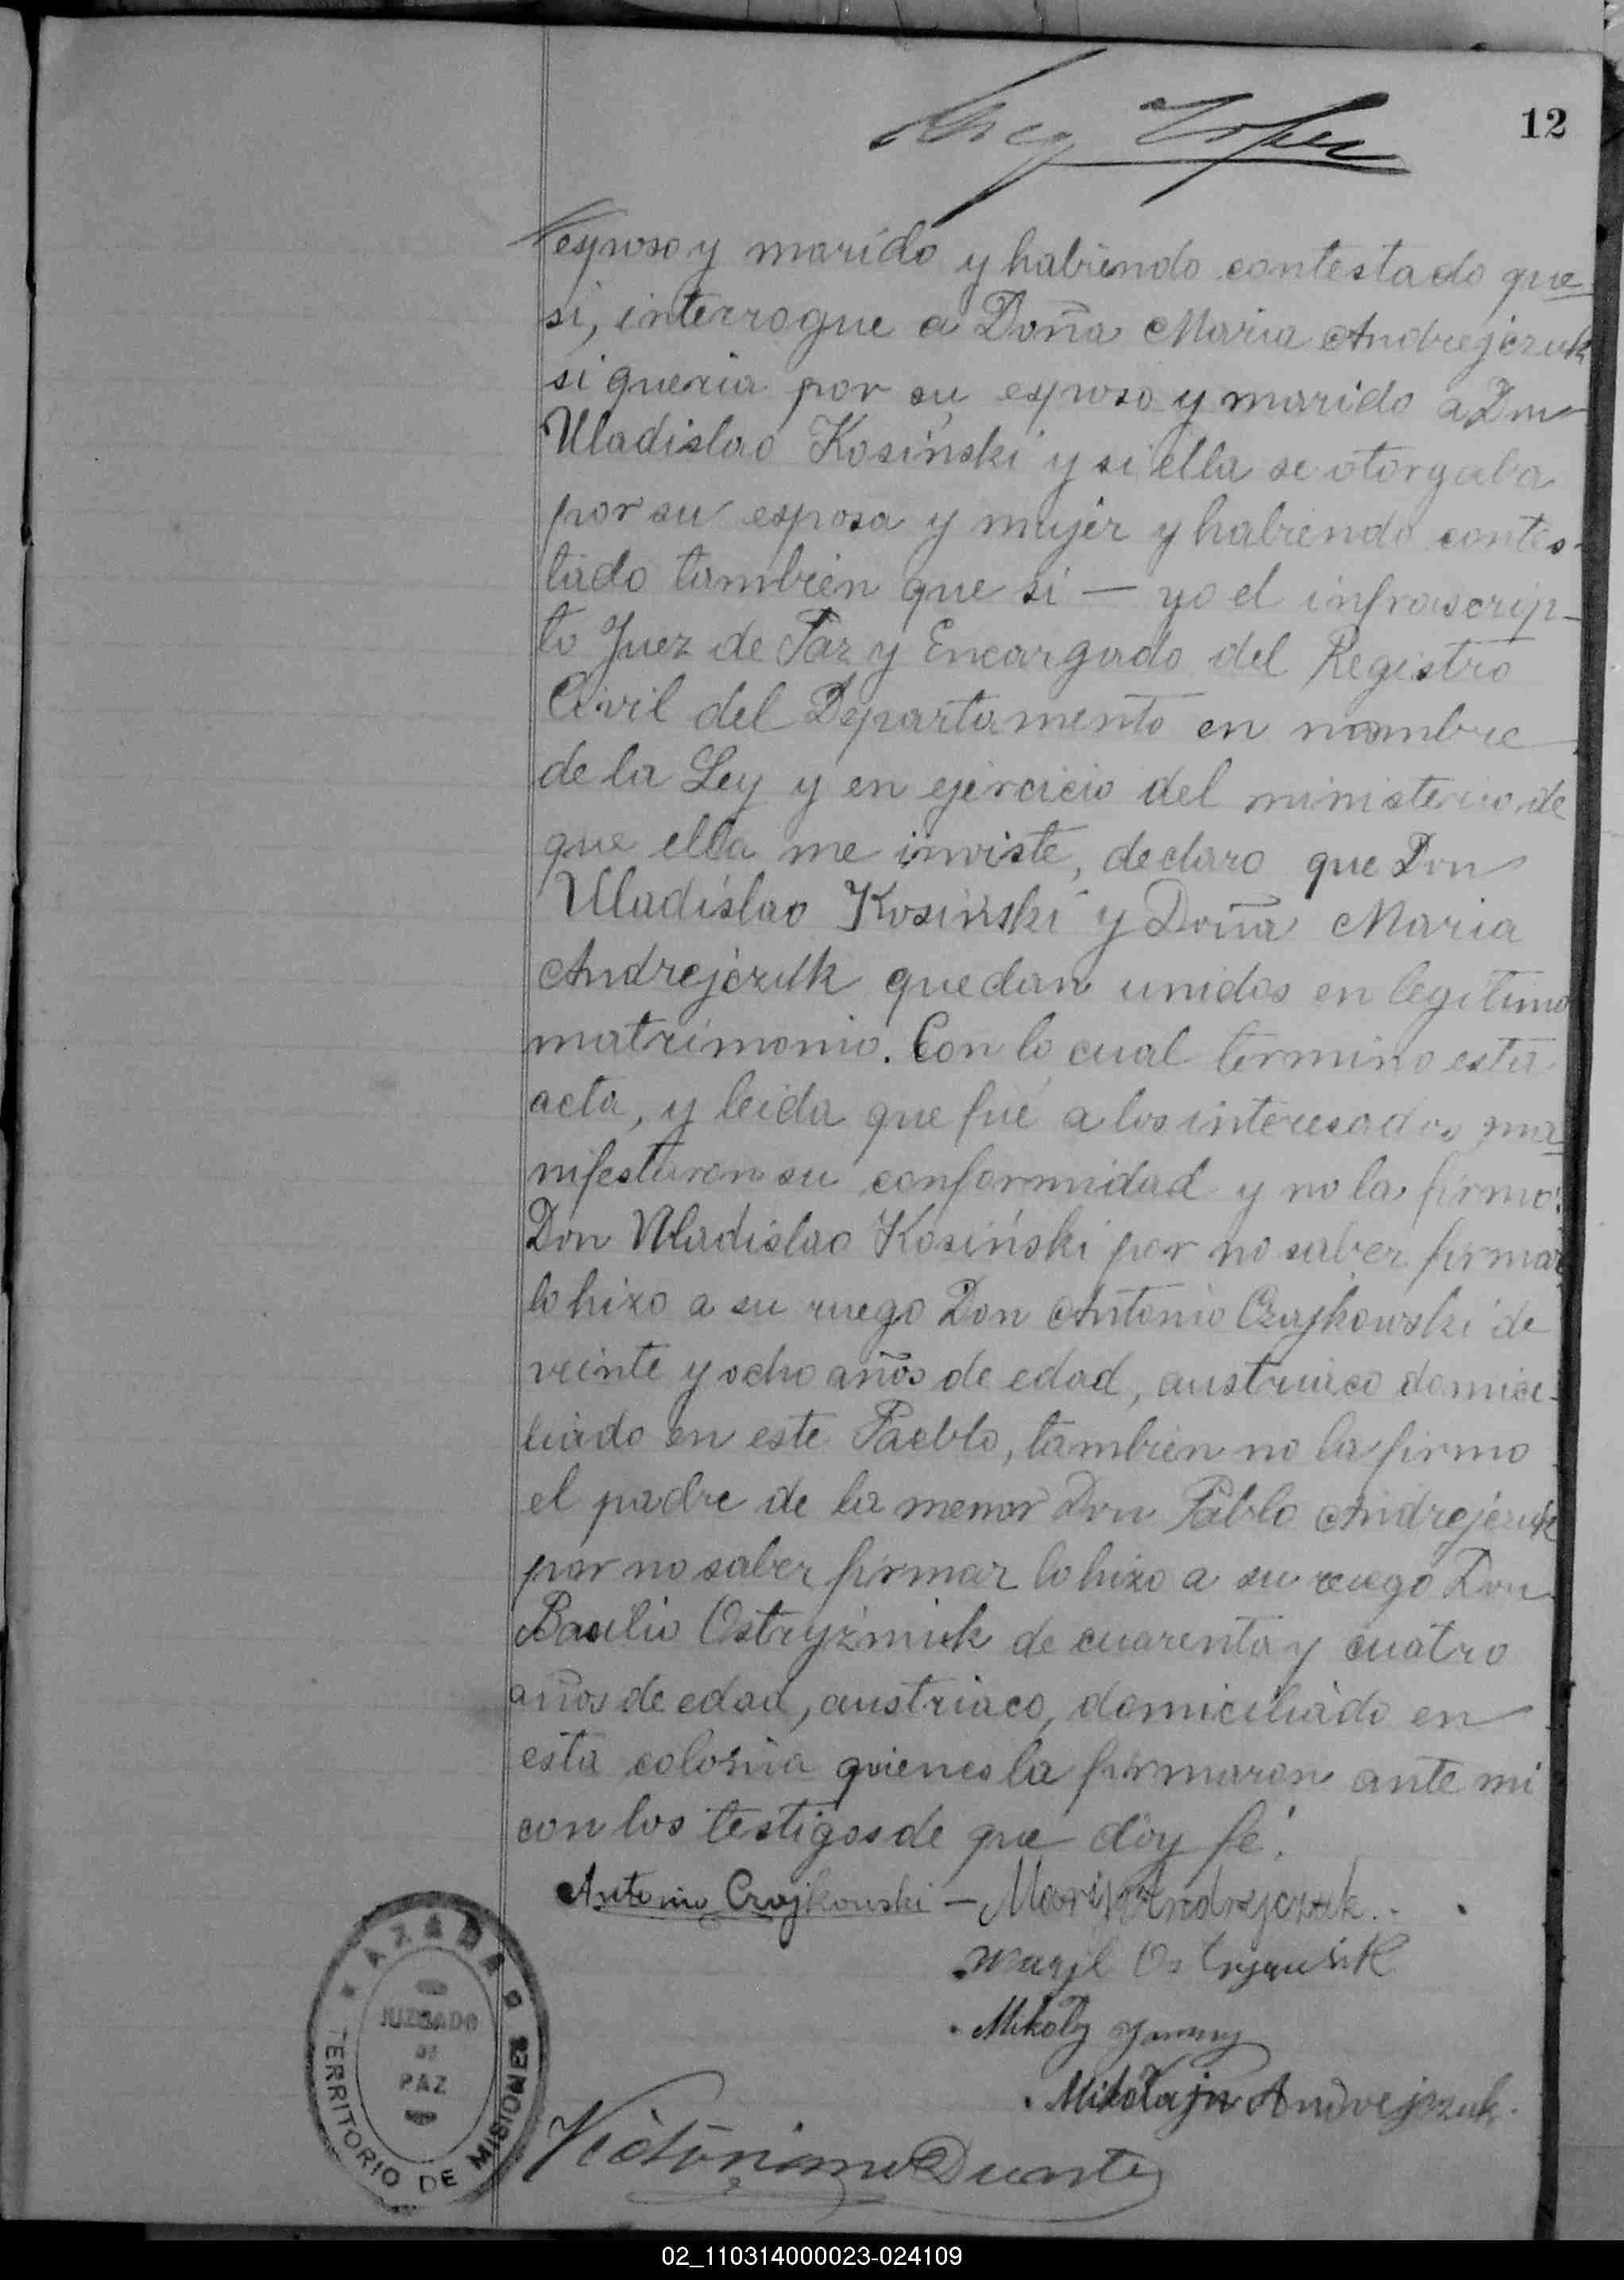 12
esposo y marido y habiendo contestado que
si, interrogue a Doña Maria Andrejczuk
si queria por su esposo y marido a Don
Uladislao Kosiński y si ella se otorgaba
por su esposa y mujer y habiendo contes-
tado tambien que si — yo el infrascrip-
to Juez de Paz y Encargado del Registro
Civil del Departamento en nombre
de la Ley y en ejercicio del ministerio de
que ella me inviste, declaro que Don
Uladislao Kosiński y Doña Maria
Andrejczuk quedan unidos en legitimo
matrimonio. Con lo cual termino esta
acta, y leida que fué a los interesados ma
nifestaron su conformidad y no la firmo
Don Uladislao Kosiński por no saber firmar
lo hizo a su ruego Don Antonio Czajkowski de
veinte y ocho años de edad, austriaco domici-
liado en este Pueblo, tambien no la firmo
el padre de la menor Don Pablo Andrejczuk
por no saber firmar lo hizo a su ruego Don
Basilio Ostryżniuk de cuarenta y cuatro
años de edad, austriaco, domiciliado en
esta colonia quienes la firmaron ante mi
con los testigos de que doy fé.
Antonio Czajkowski — Marija Andrejczuk.
Mikołaj
Mikołajn Andrejczuk.
Victoriano Duarte
JUZGADO
DE
PAZ
TERRITORIO DE MISIONES
02_110314000023-024109